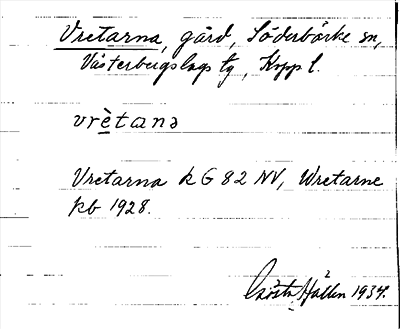 Vretarna, gård, Söderbärke sn,
Västerbergslags tg, Kopp l.
vrètanə
Vretarna k G 82 NV, Wretarne
kb 1928.
Gösta Hallen 1934.